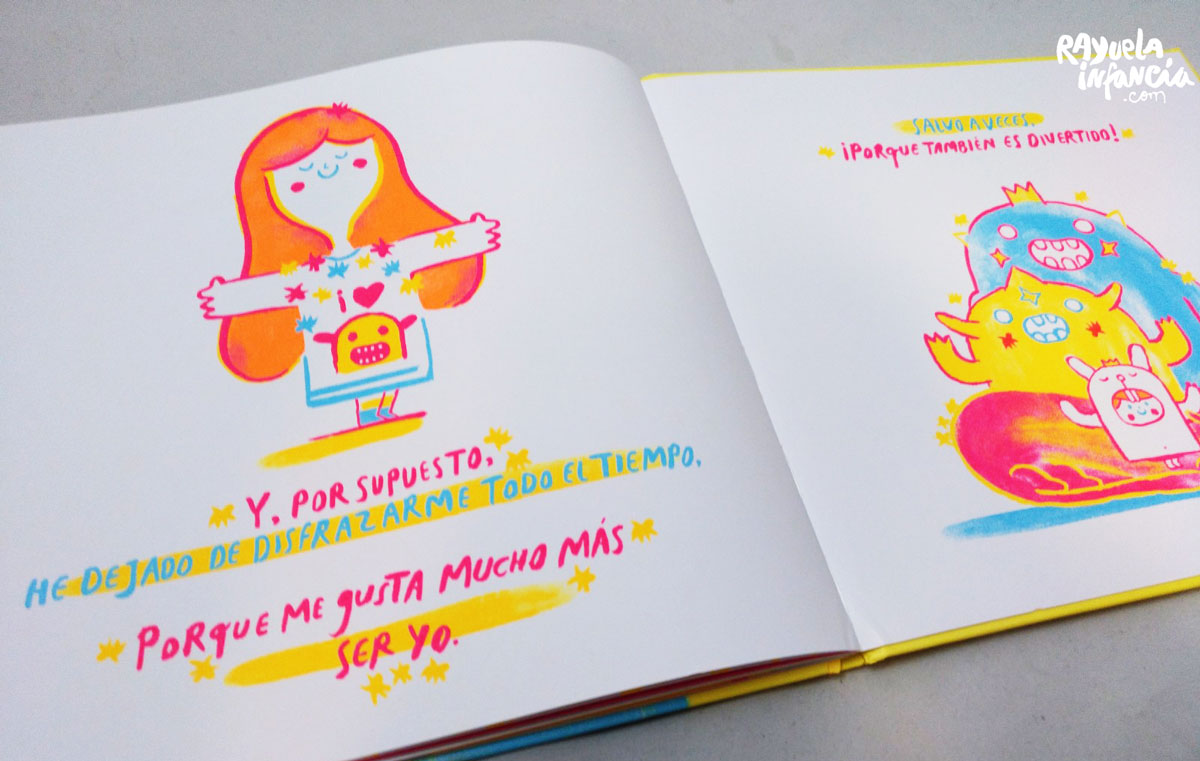 i ♥
Y, POR SUPUESTO,
HE DEJADO DE DISFRAZARME TODO EL TIEMPO,
PORQUE ME GUSTA MUCHO MÁS
SER YO.
SALVO A VECES,
¡PORQUE TAMBIÉN ES DIVERTIDO!
RAYUELA
infancia
.com